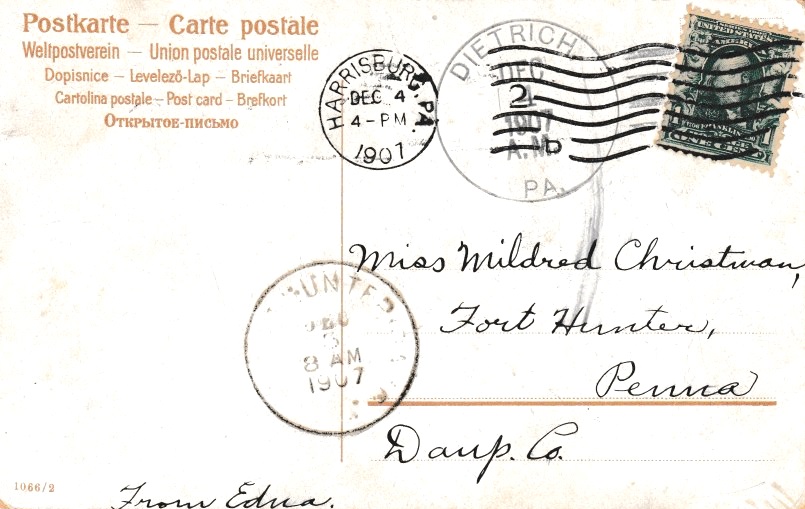 Postkarte – Carte postale
Weltpostverein – Union postale universelle
Dopisnice – Levelező-Lap – Briefkaart
Cartolina postale – Post card – Brefkort
Открытое-письмо
HARRISBURG, PA.
DEC 4
4-PM
1907
DIETRICH
DEC
1907
A.M.
PA.
2
b
UNITED STATES
FRANKLIN
Miss Mildred Christman,
Fort Hunter,
Penna
Daup. Co.
HUNTER
8 AM
1907
1066/2
From Edna.